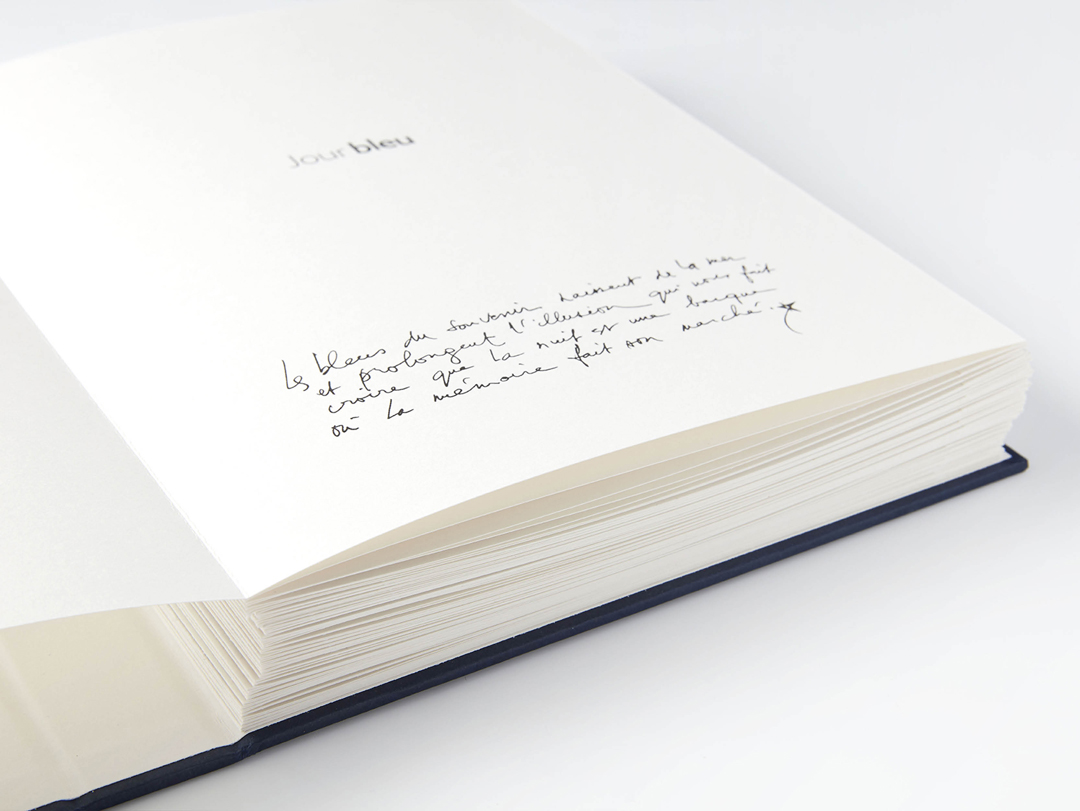 Jour bleu
Les bleus du souvenir naissent de la mer
et prolongent l'illusion qui nous fait
croire que la nuit est une barque
où la mémoire fait son marché.